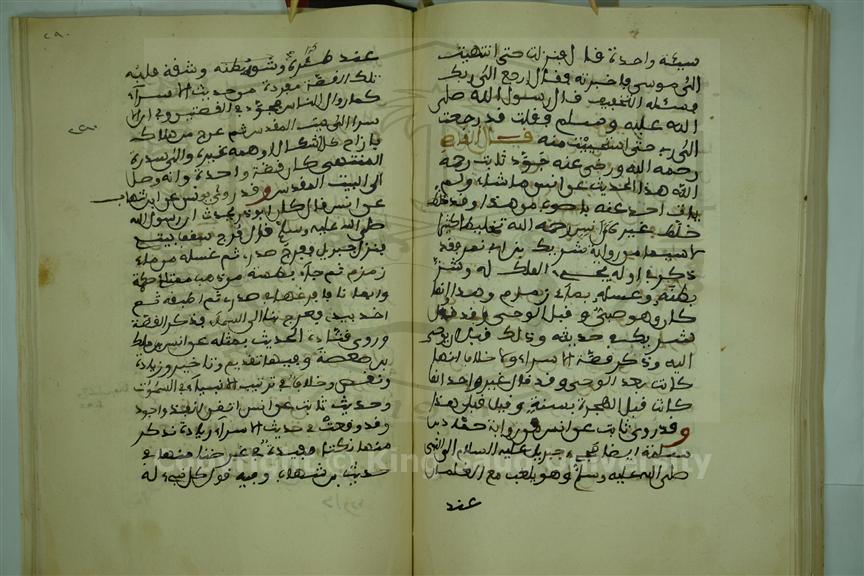 سيئة واحدة قال فنزلت حتى انتهيت
الى موسى فاخبرته فقال ارجع الى ربك
فسئله التخفيف فقال رسول الله صلى
الله عليه وسلم فقلت قد رجعت
الى ربي حتى استحييت منه قال القاضي
رحمه الله ورضي عنه جوّد ثابت رحمه
الله هذا الحديث عن انس ما شاء ولم
يات احد عنه باصوب من هذا وقد خلط
خلّط غيره عن انس رحمه الله تخليطا كثيرا
لا سيما من رواية شريك بن ابي نمر فقد
ذكر في اوله مجيء الملك له وشق
بطنه وغسله بماء زمزم وهذا انما
كان وهو صبي وقبل الوحي وقد قال
شريك في حديثه وذلك قبل ان يوحى
اليه وذكر قصة الاسراء ولا خلاف انها
كانت بعد الوحي وقد قال غير واحد انها
كانت قبل الهجرة بسنة وقيل قبل هذا
وقد روى ثابت عن انس من رواية حماد بن
سلمة ايضا مجيء جبريل عليه السلام الى النبي
صلى الله عليه وسلم وهو يلعب مع الغلمان
عند
عند ظئره وشق بطنه وشقه قلبه
تلك القصة مفردة من حديث الاسراء
كما رواه الناس فجوّد في القصتين وفي ان الا
سراء الى بيت المقدس ثم عرج من هناك
فازاح كل اشكال اوهمه غيره والى سدرة
المنتهى كان قصة واحدة وانه وصل
الى البيت المقدس وقد روى يونس عن ابن شهاب
عن انس قال كان ابو ذر يحدث ان رسول الله
صلى الله عليه وسلم قال فرج سقف بيتي
فنزل جبريل ففرج صدري ثم غسله من ماء
زمزم ثم جاء بطست من ذهب ممتلئ حكمة
وايمانا فافرغها في صدري ثم اطبقه ثم
اخذ بيدي فعرج بنا الى السماء فذكر القصة
وروى قتادة الحديث بمثله عن انس عن مالك
بن صعصعة وفيها تقديم وتاخير وزيادة
ونقص وخلاف في ترتيب الانبياء في السموت
وحديث ثابت عن انس اتقن واجود
وقد وقعت في حديث الاسراء زيادة نذكر
منها نكتا مفيدة في غرضنا منها في
حديث بن شهاب وفيه قول كل نبي له